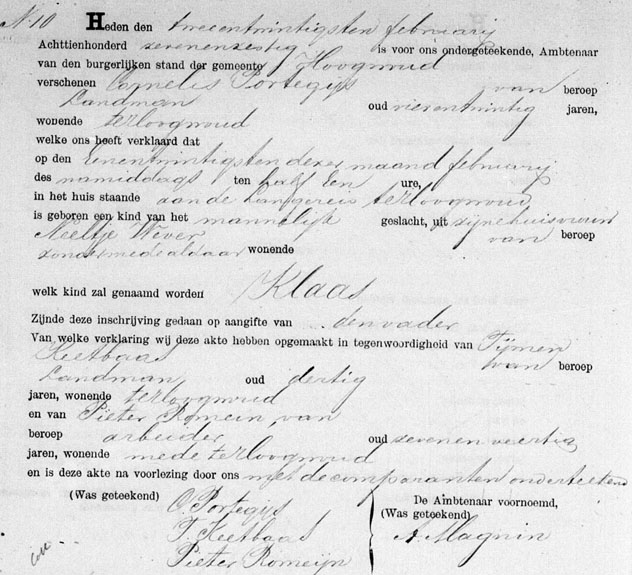 N 10 Heden den tweeentwintigsten februarij
Achttienhonderd zevenenzestig is voor ons ondergeteekende, Ambtenaar
van den burgerlijken stand der gemeente Hoogwoud
verschenen Cornelis Portegijs van beroep
Landman oud vierentwintig jaren,
wonende te Hoogwoud
welke ons heeft verklaard dat
op den Eenentwintigsten dezer maand februarij
des namiddags ten half Een ure,
in het huis staande aan de Langereis te Hoogwoud
is geboren een kind van het mannelijk geslacht, uit zijne huisvrouw
Neeltje Wever van beroep
zonder mede aldaar wonende
welk kind zal genaamd worden Klaas
Zijnde deze inschrijving gedaan op aangifte van den vader
Van welke verklaring wij deze akte hebben opgemaakt in tegenwoordigheid van Tijmen
Keetbaas van beroep
Landman oud dertig
jaren, wonende te Hoogwoud
en van Pieter Romein, van
beroep arbeider oud zevenenveertig
jaren, wonende mede te Hoogwoud
en is deze akte na voorlezing door ons met de comparanten onderteekend
(Was geteekend) C. Portegijs De Ambtenaar voornoemd,
(Was geteekend)
T. Keetbaas A. Magnin
Pieter Romeijn